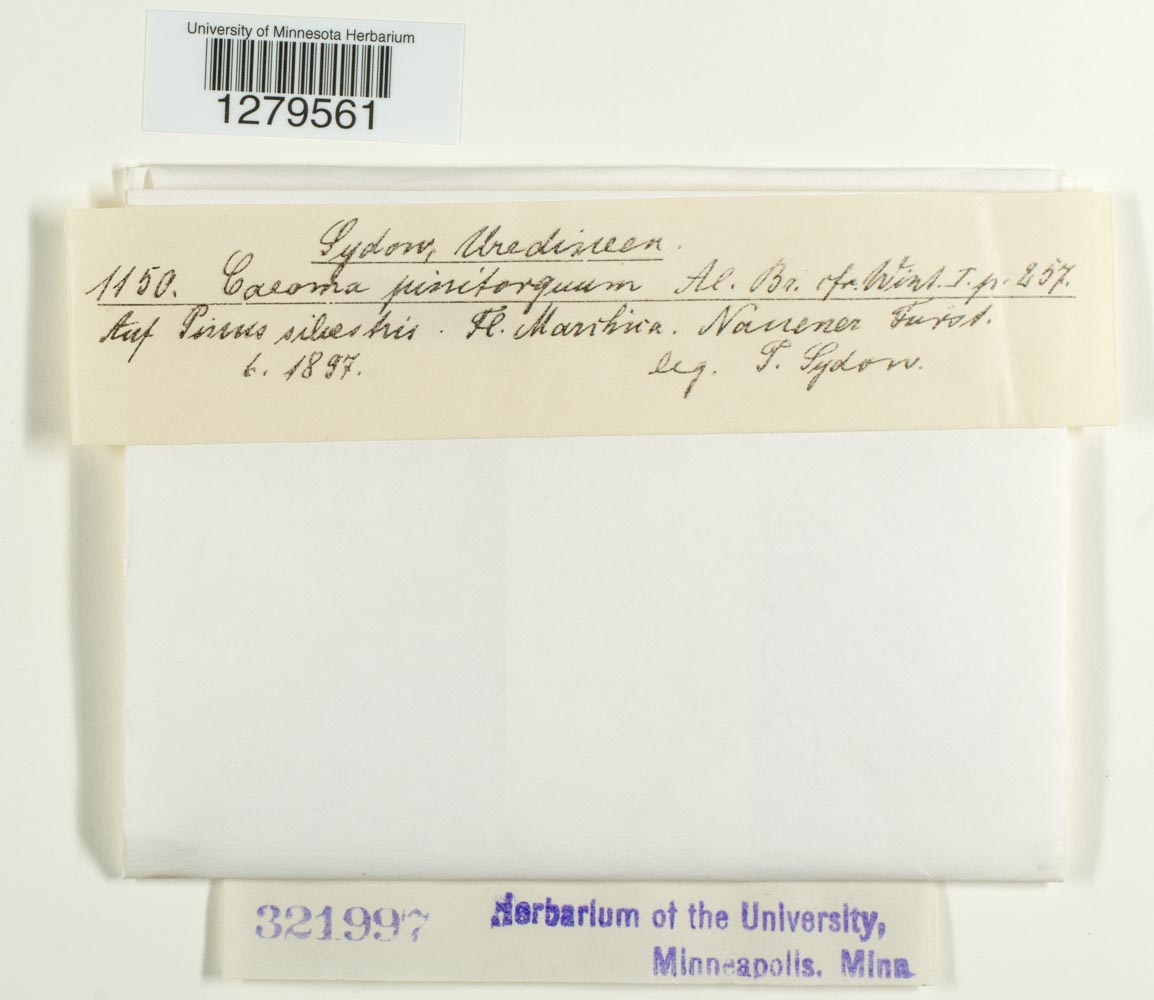 University of Minnesota Herbarium
1279561
Sydow, Uredineen.
1150. Caeoma pinitorquum Al. Br. cfr. Wint. I. p. 257.
Auf Pinus silvestris. Fl. Marchica. Nauener Forst.
6. 1897. leg. P. Sydow.
321997 Herbarium of the University,
Minneapolis. Minn.